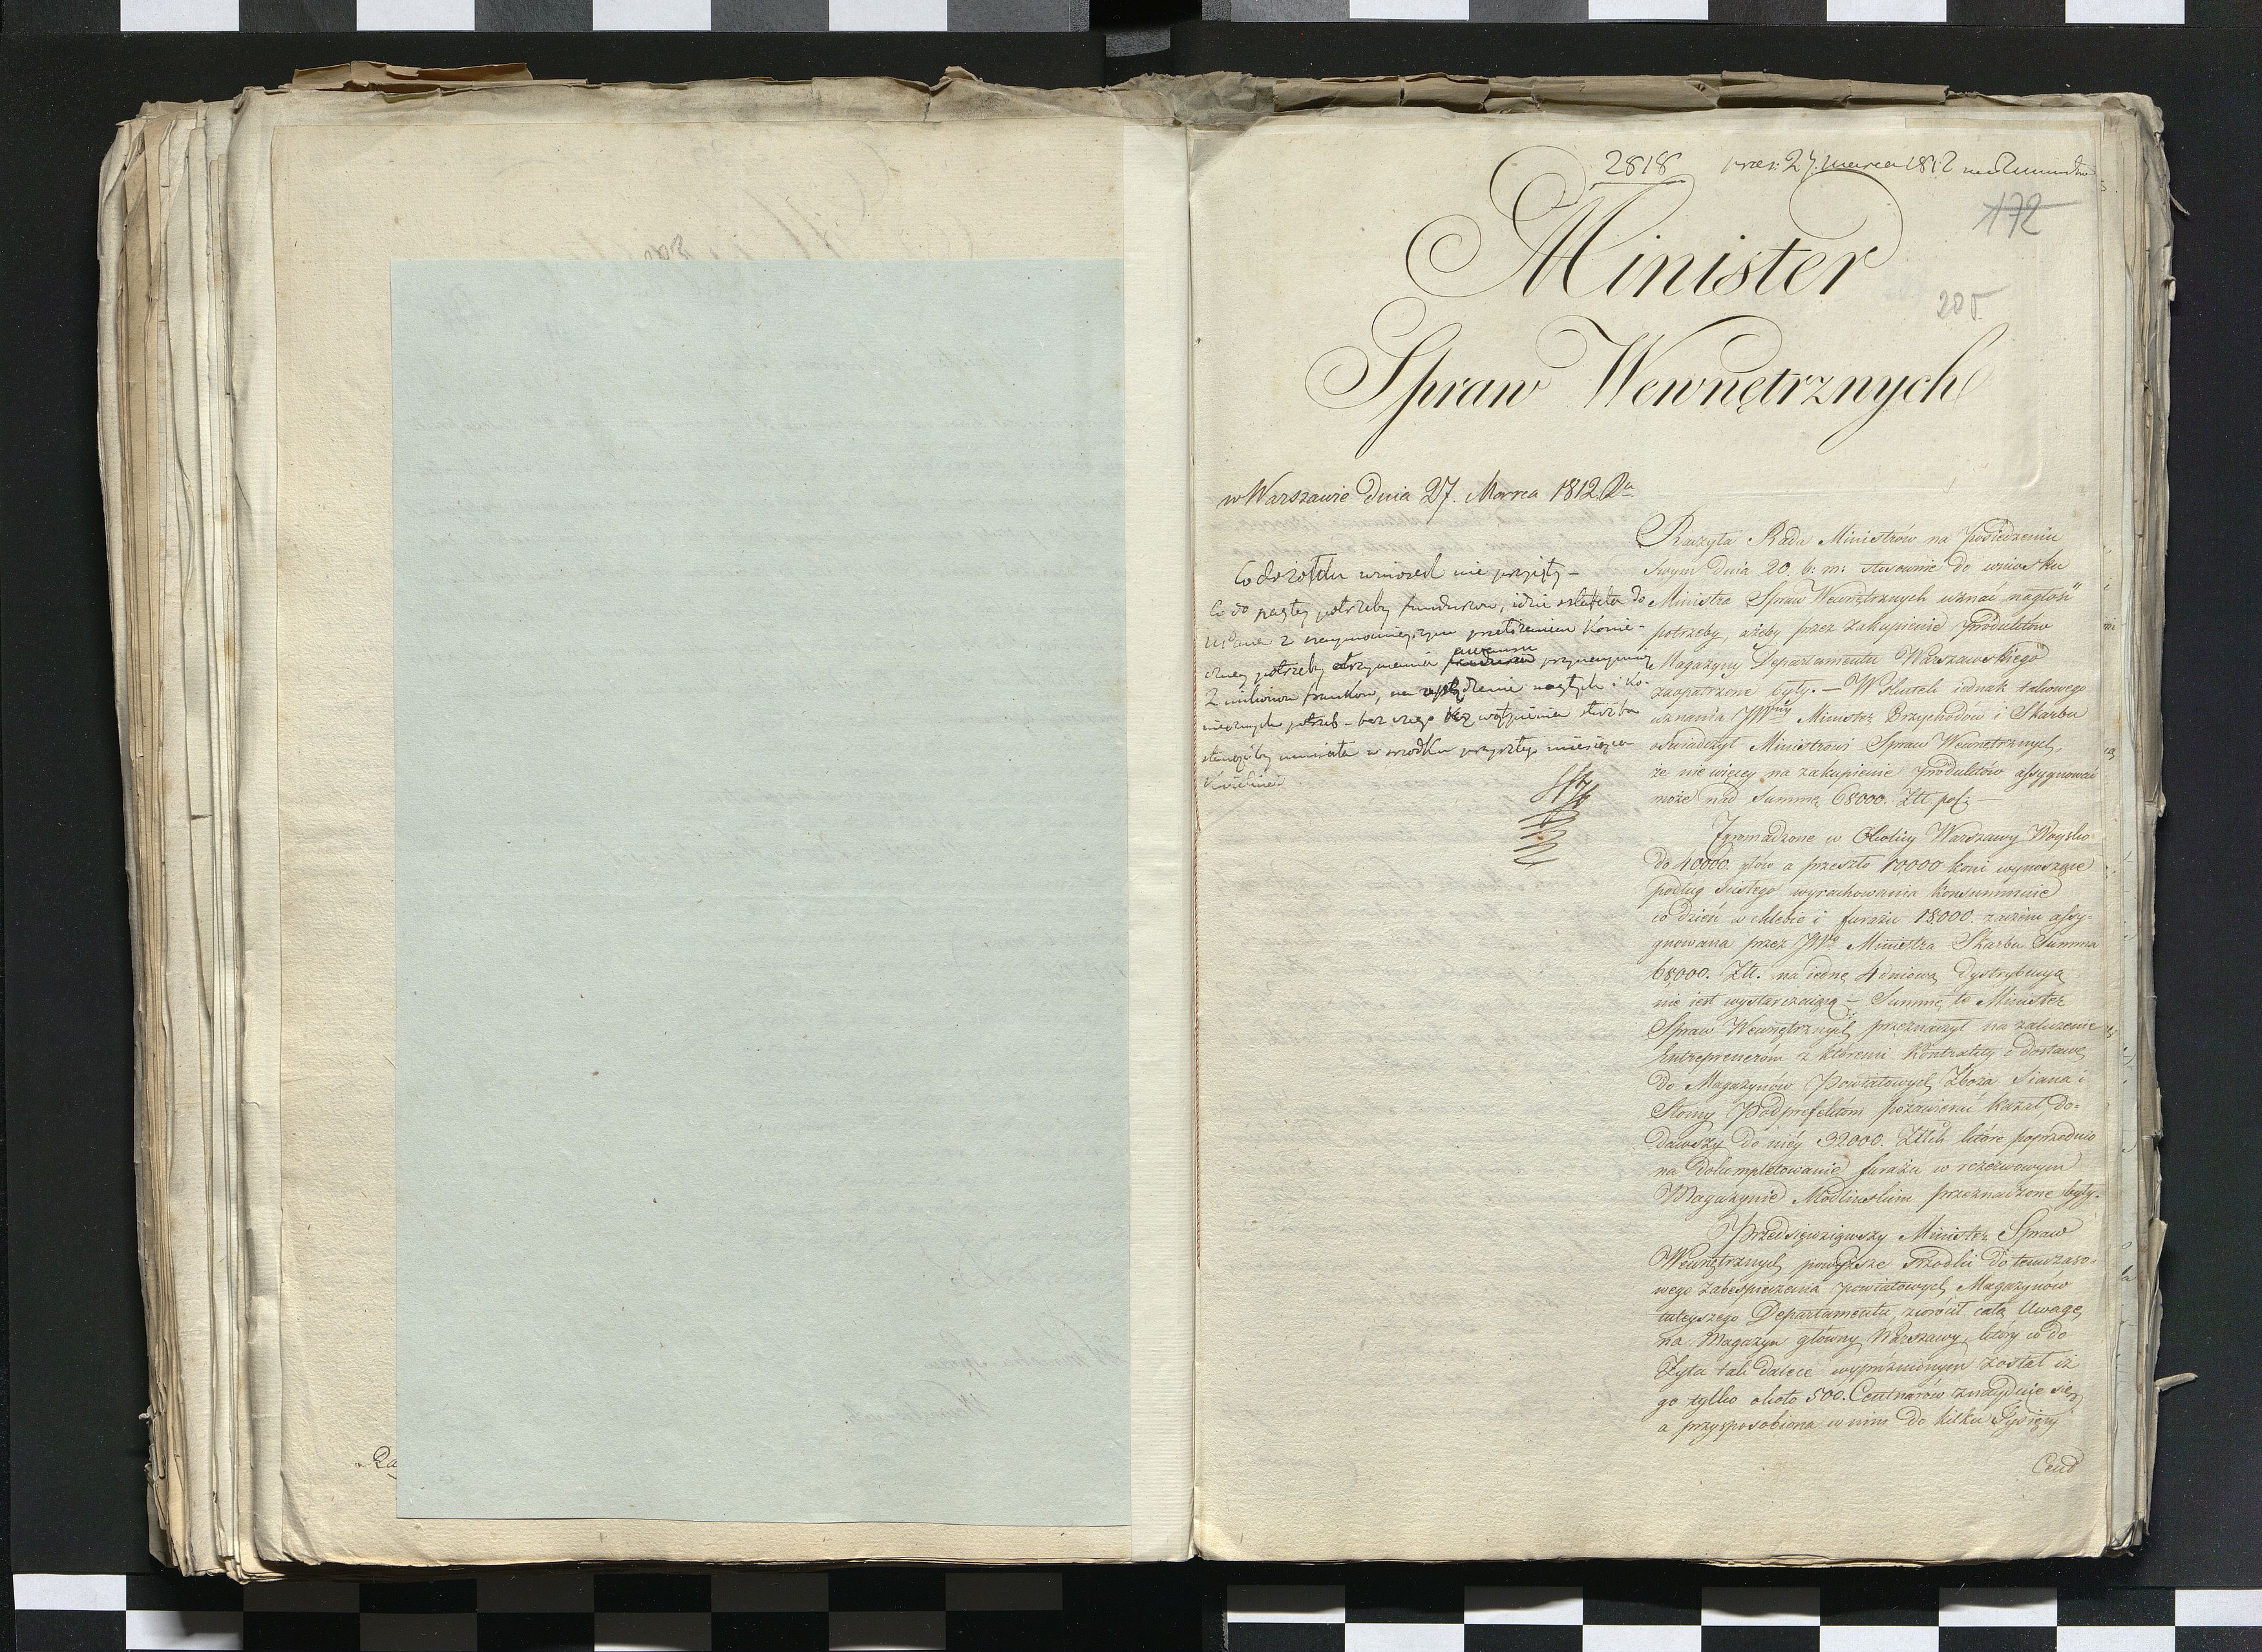 2818 prez: 27. marca 1812
172
205
Minister
Spraw Wewnętrznych
w Warszawie Dnia 27. Marca 1812 Ru
Co do żołdu wniosek nie przyięty –
Co do nagłey potrzeby funduszow, idzie do
z przełożeniem konie-
czney potrzeby otrzymania awansu przynaymniey
2 milionow frankow, na nagłych i ko-
niecznych potrzeb – bez czego bez wątpienia służba
stanąćby musiała w srodku przyszłego miesiąca
Kwietnia.
Raczyła Rada Ministrów na Posiedzeniu
swym dnia 20. b: m: stosownie do wniosku
Ministra Spraw Wewnętrznych uznać nagłość
potrzeby, ażeby przez zakupienie Produktów
Magazyny Departamentu Warszawskiego
zaopatrzone były. – W skutek iednak takowego
uznania JWny Minister Przychodów i Skarbu
oświadczył Ministrowi Spraw Wewnętrznych,
że nie więcey na zakupienie Produktów assygnować
może nad Summę 68000. Złt. pol: –
Zgromadzone w Okolicy Warszawy Woysko
do 40000. głów a przeszło 10,000 koni wynoszące
podług ścisłego wyrachowania konsummuie
co dzień w chlebie i furażu 18000. zaczem assy-
gnowana przez JWo Ministra Skarbu Summa
68,000. Złt. na iednę 4 dniową Dystrybucyą
nie iest wystarczaiącą – Summę tę Minister
Spraw Wewnętrznych przeznaczył na zaliczenie
Entreprenerów z któremi Kontrakty o dostawę
do Magazynów Powiatowych Zboża Siana i
Słomy Podprefektom pozawierać kazał, do-
dawszy do niéy 32000. Złtch które poprzednio
na dokompletowanie furażu w rezerwowym
Magazynie Modlinskim przeznaczone były.
Przedsięwziąwszy Minister Spraw
Wewnętrznych powyższe srzodki do tymczaso-
wego zabespieczenia powiatowych Magazynów
tuteyszego Departamentu, zwrócił całą Uwagę
na Magazyn główny Warszawy, który co do
Żyta tak dalece wypróżnionym został iż
go tylko około 500. Centnarów znayduie się,
a przysposobiona w nim do kilku Tysięcy
Cent
Ra